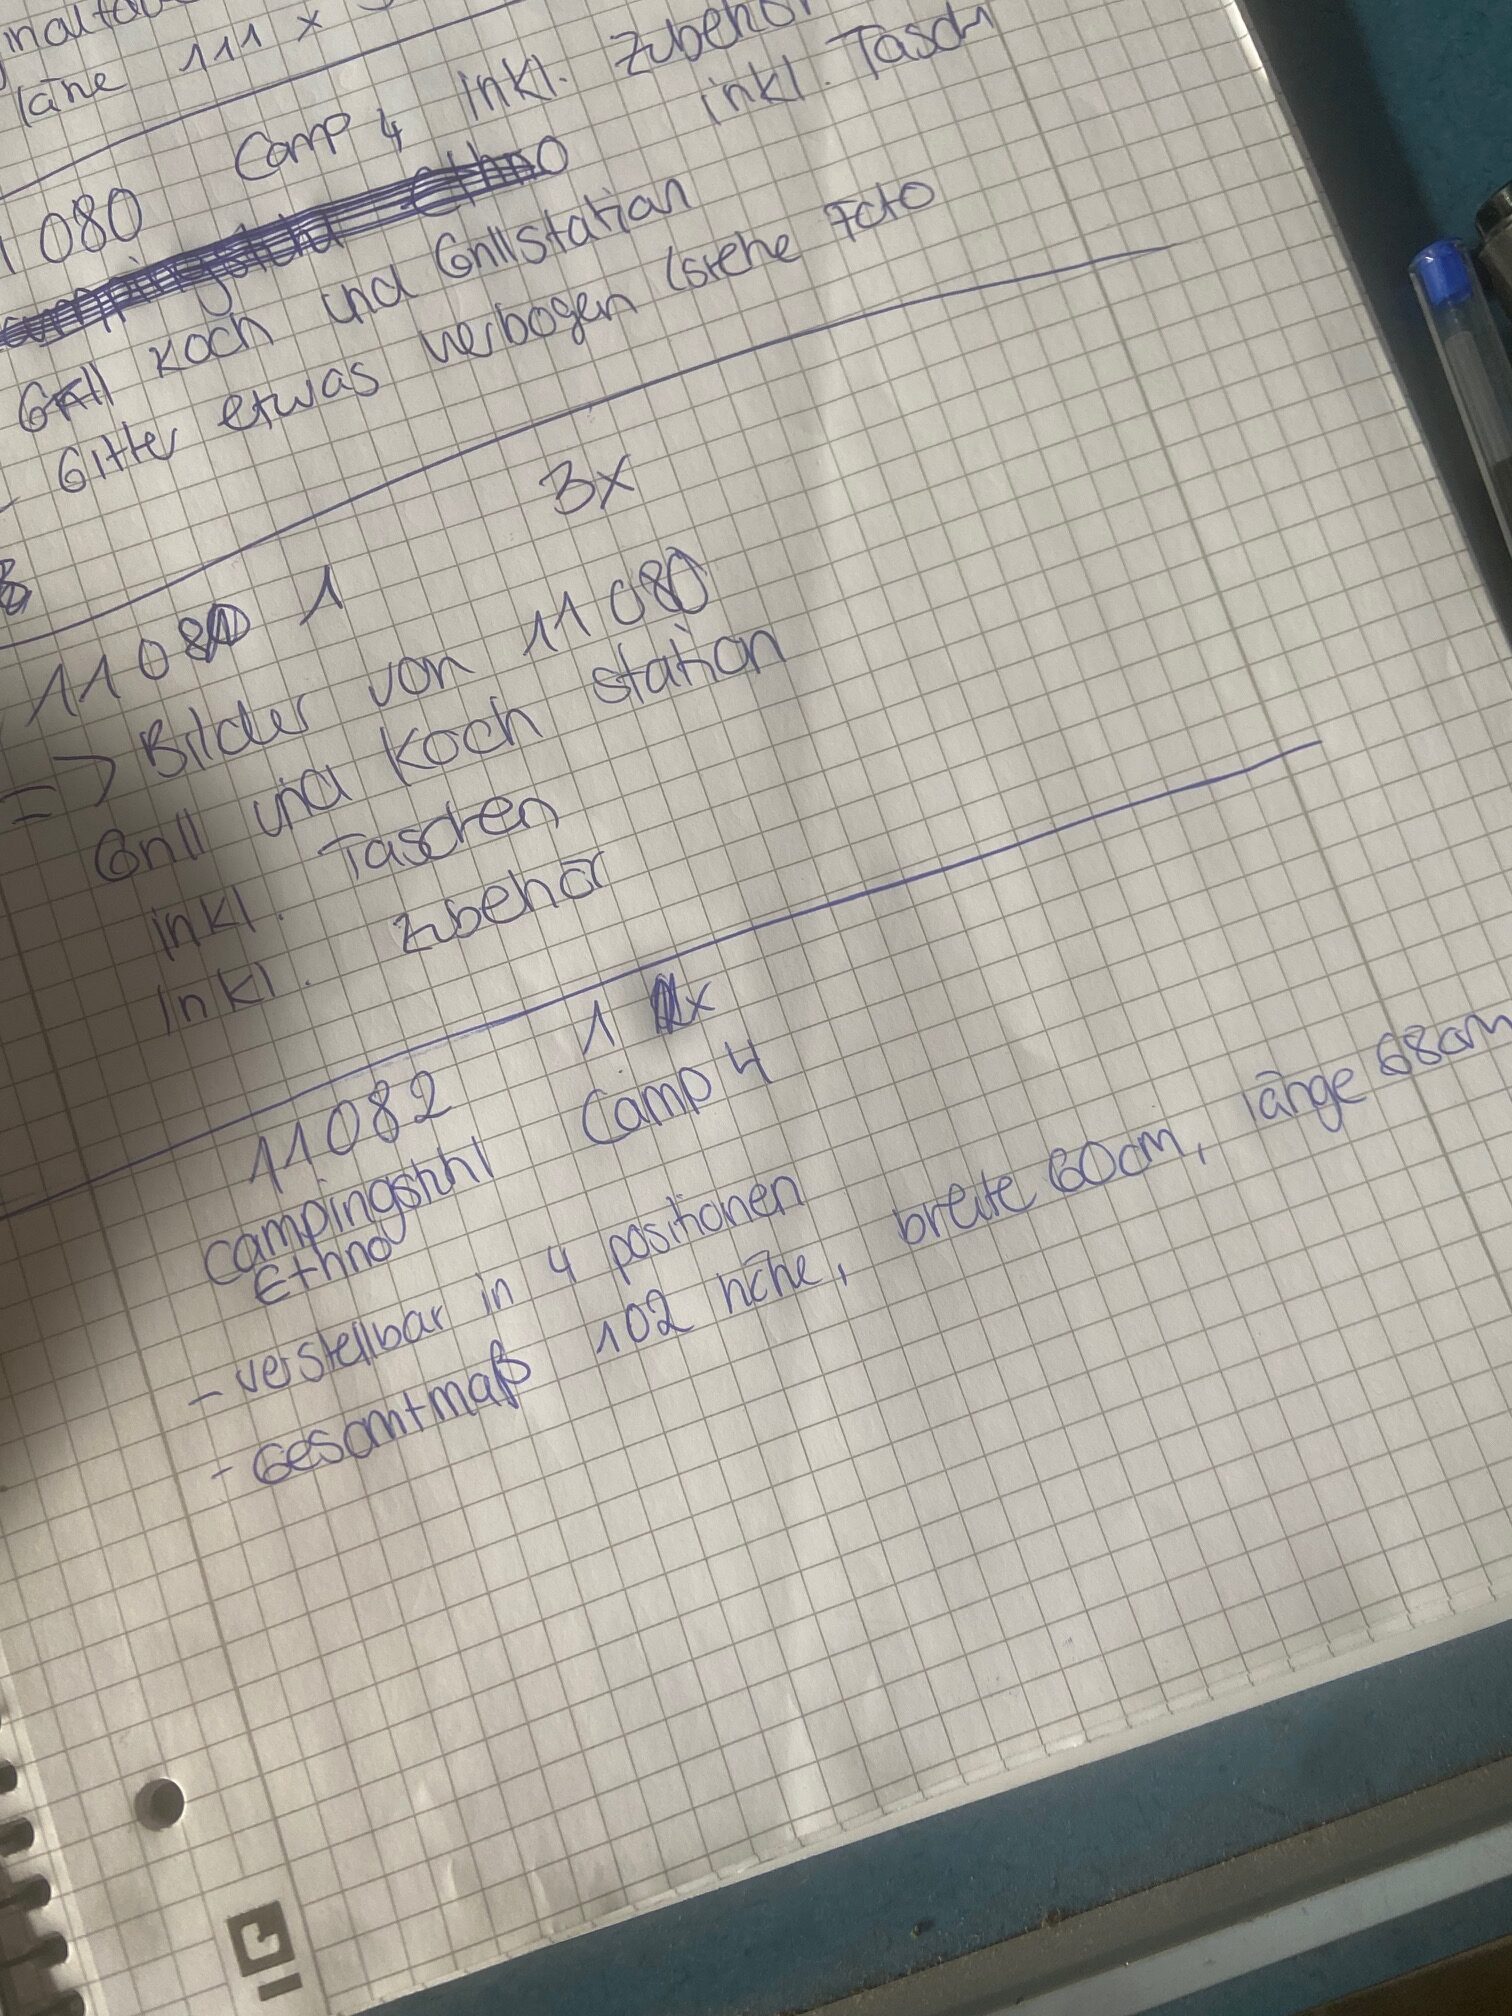 läne 111 x
080 Camp 4 inkl. Zubehör
inkl. Tasch
Grill Koch und Grillstation
- Gitter etwas verbogen (siehe Foto
1108 1 3x
=> Bilder von 11080
Grill und Koch station
inkl. Taschen
Inkl. Zubehör
11082 1 x
Campingstuhl Camp 4
Ethno
- verstellbar in 4 positionen
- Gesamtmaß 102 höhe, breite 60cm, länge 68cm